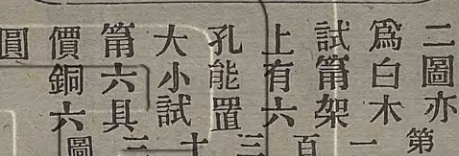 二圖亦
爲白木
試筩架
上有六
孔能置
大小試
筩六具
價銅六
圓
第一百三十三圖